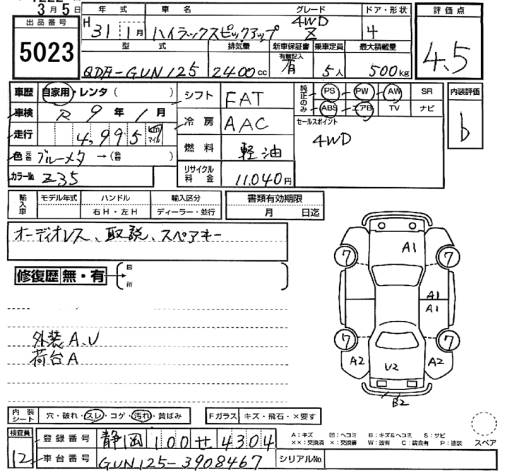 3月5日
出品番号 5023
年式 車名 グレード ドア・形状 評価点
H31 1月 ハイラックスピックアップ 4WD Z 4 4.5
型式 排気量 新車保証書 有無記入 乗車定員 最大積載量
QDA-GUN125 2400cc 有 5人 500kg
車歴 自家用・レンタ( ) シフト FAT 純正のみ PS PW AW SR 内装評価
車検 R9年1月 冷房 AAC ABS エアB TV ナビ b
走行 4,995 km マイル 燃料 軽油 セールスポイント
4WD
色 ブルーメタ →( ) リサイクル料金 11,040円
カラー№ Z35
輸入車 モデル年式 ハンドル 輸入区分 書類有効期限
右H・左H ディーラー・並行 月 日迄
オーディオレス、取説、スペアキー
修復歴 無・有
外装A、U
荷台A
A1
7 7
A1
A1
7 7
A2 U2 A2
B2
内装シート 穴・破れ・スレ・コゲ・汚れ・黄ばみ Fガラス キズ・飛石・×要す
検査員 12 登録番号 静岡 100 せ 4304
車台番号 GUN125-3908467 シリアルNo.
A:キズ U:ヘコミ B:キズ&ヘコミ S:サビ
スペア